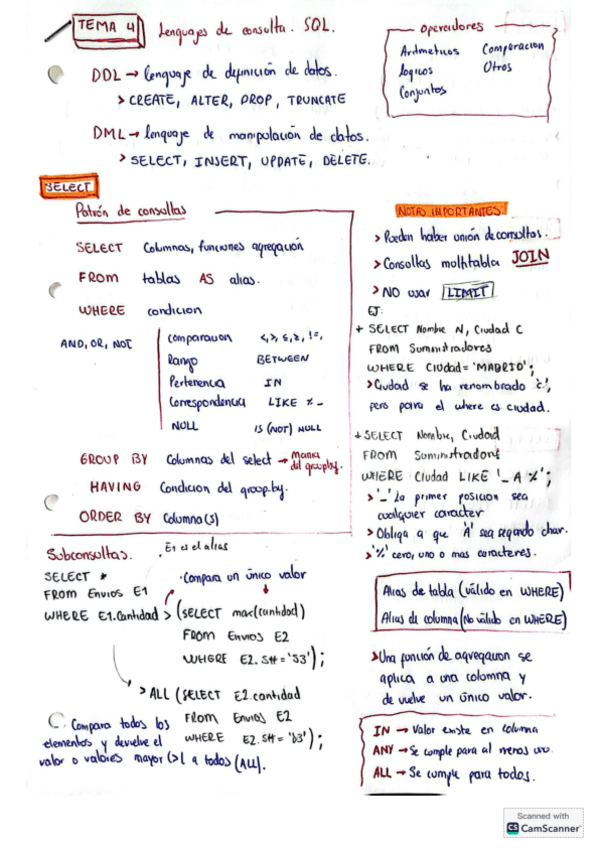 TEMA 4 Lenguajes de consulta. SQL.
Operadores
Aritmeticos Comparacion
Logicos Otros
Conjuntos
DDL → lenguaje de definición de datos.
> CREATE, ALTER, DROP, TRUNCATE
DML → lenguaje de manipulación de datos.
> SELECT, INSERT, UPDATE, DELETE.
SELECT
Patrón de consultas
SELECT Columnas, funciones agregación
FROM tablas AS alias.
WHERE condicion
AND, OR, NOT
Comparacion <,>,≤,≥,!=,
Rango BETWEEN
Pertenencia IN
Correspondencia LIKE % _
NULL IS (NOT) NULL
GROUP BY Columnas del select → manda del groupby.
HAVING Condicion del group-by.
ORDER BY Columna(s)
NOTAS IMPORTANTES
> Pueden haber unión de consultas.
> Consultas multitabla JOIN
> NO usar LIMIT
EJ:
+ SELECT Nombre N, Ciudad C
FROM Suministradores
WHERE Ciudad = 'MADRID';
> Ciudad se ha renombrado 'c',
pero para el where es ciudad.
+ SELECT Nombre, Ciudad
FROM Suministradores
WHERE Ciudad LIKE '_A%';
> '_' La primer posicion sea
cualquier caracter
> Obliga a que 'A' sea segundo char.
> '%' cero, uno o mas caracteres.
Subconsultas.
. E1 es el alias
SELECT *
FROM Envios E1
· Compara un único valor
WHERE E1.Cantidad > (SELECT max(cantidad)
FROM Envios E2
WHERE E2.S# = 'S3');
> ALL (SELECT E2.cantidad
FROM Envios E2
WHERE E2.S# = 'S3');
Compara todos los
elementos y devuelve el
valor o valores mayor (>) a todos (ALL).
Alias de tabla (válido en WHERE)
Alias de columna (No válido en WHERE)
> Una función de agregacion se
aplica a una columna y
devuelve un único valor.
IN → Valor existe en columna
ANY → Se cumple para al menos uno.
ALL → Se cumple para todos.
Scanned with
CS CamScanner